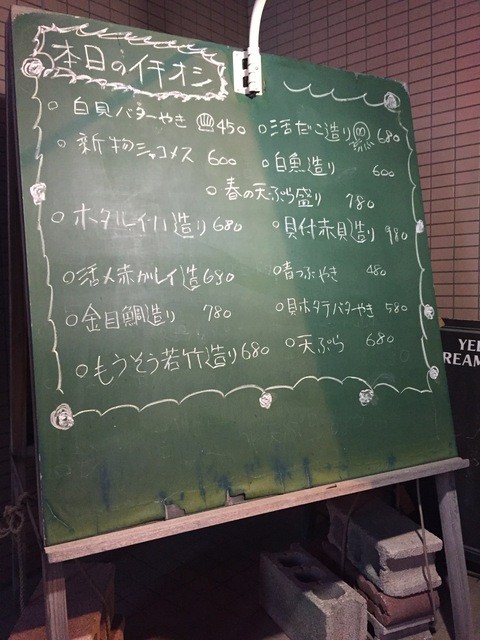 本日のイチオシ
○ 白貝バターやき 450
○ 新物シャコメス 600
○ 活だこ造り 680
○ 白魚造り 600
○ 春の天ぷら盛り 780
○ ホタルイカ造り 680
○ 貝付赤貝造り 980
○ 活〆赤ガレイ造 680
○ 青つぶやき 480
○ 金目鯛造り 780
○ 貝ホタテバターやき 580
○ もうそう若竹造り 680
○ 天ぷら 680
YE
REAM